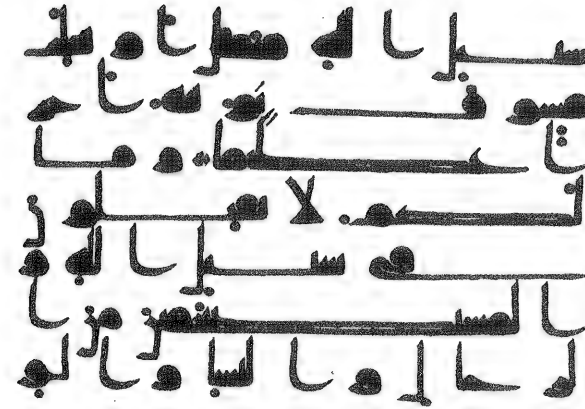 سبيل الله فيقتل او يغلب
فسوف نؤتيه اجر
ا عظيما و ما
لكم لا تقتلو ن
في سبيل الله و
ا لمستضعفين من ا
لرجال و النسا و الو